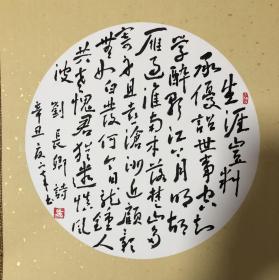 生涯豈料
承優詔世事空知
学醉歌江上月明胡
雁過淮南木落楚山多
寄身且喜滄洲近顧影
無如白髮何今日龍鍾人
共老愧君猶遣慎風
波 劉長卿詩
辛丑夏